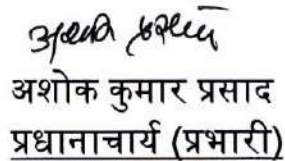 अशोक कुमार प्रसाद
प्रधानाचार्य (प्रभारी)